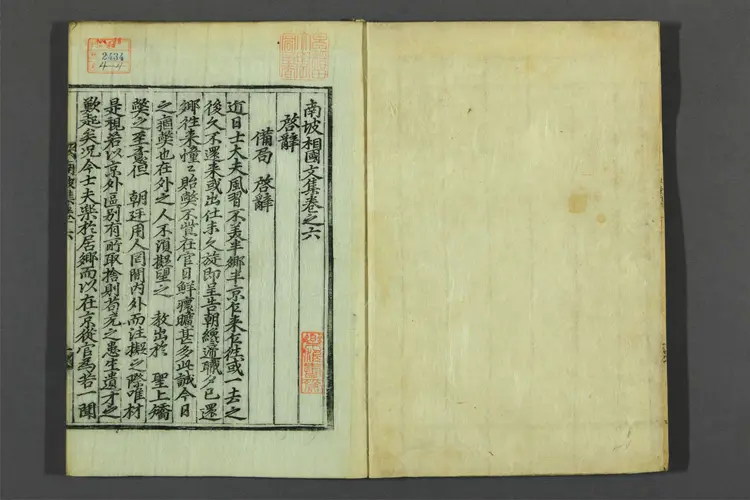 南坡相國文集卷之六
啓辭
備局 啓辭
近日士大夫風習不美半鄉半京乍来乍往或一士之
後久不還来或出仕未久旋即呈告朝纔遞職夕已還
鄉往来憧〻貽弊不貲在官日鮮瘝曠甚多此誠今日
之痼弊也在外之人不須擬望之 教出於 聖上矯
弊之至意但 朝廷用人罔間内外而注擬之際唯材
是視若以京外區別有所取捨則苟充之患生遺才之
歎起矣况今士夫樂於居鄉而以在京從官爲苦一聞
2434
4-4